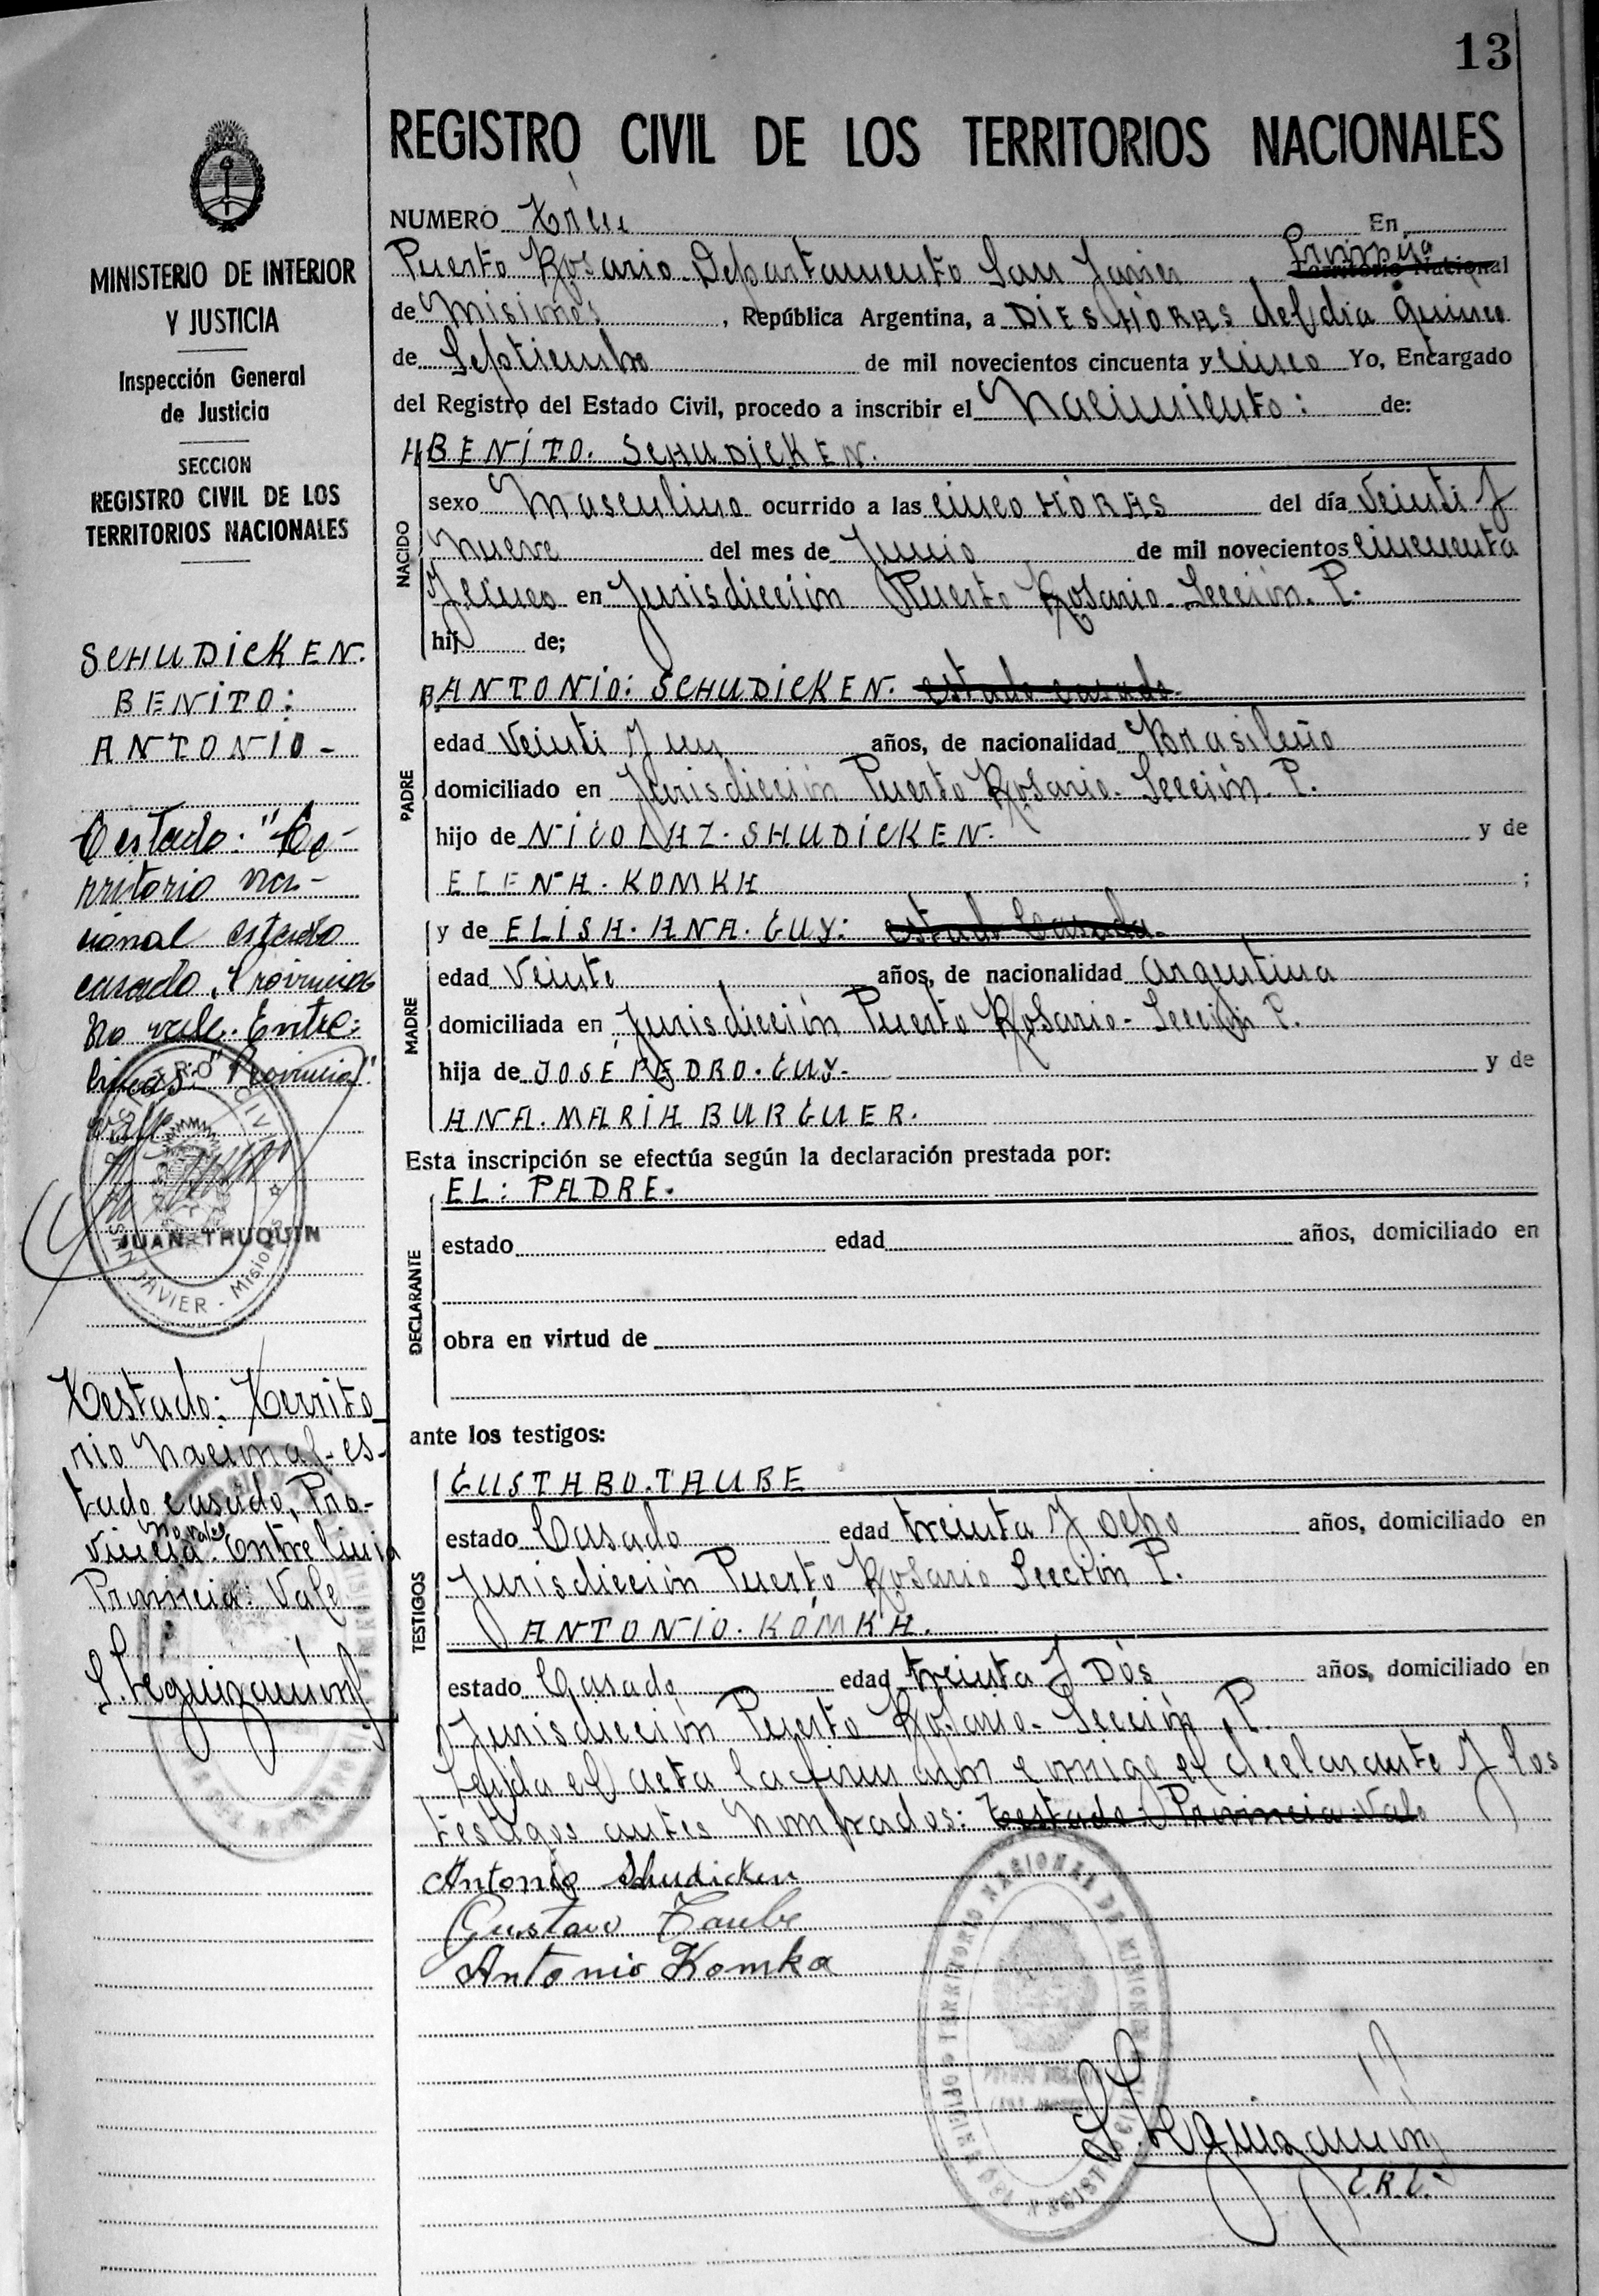 13
REGISTRO CIVIL DE LOS TERRITORIOS NACIONALES
MINISTERIO DE INTERIOR
Y JUSTICIA
Inspección General
de Justicia
SECCION
REGISTRO CIVIL DE LOS
TERRITORIOS NACIONALES
SCHUDICKEN.
BENITO:
ANTONIO-
Testado: "Te-
rritorio na-
cional estado
casado, Provincia
no vale. Entre:
lineas: "Provincia"
vale
REGISTRO CIVIL
JUAN TRUQUIN
SAN JAVIER - Misiones
Testado: Territo_
rio Nacional-es-
tado casado, Pro-
no vale
vincia. Entre linia
Provincia: Vale
S. Leguizamón
NUMERO Tréce En
Puerto Rosario Departamento San Javier, Provincia
Territorio Nacional
de Misiones, República Argentina, a DIES HORAS del dia quince
de Septiembre de mil novecientos cincuenta y cinco Yo, Encargado
del Registro del Estado Civil, procedo a inscribir el Nacimiento: de:
BENITO. SCHUDICKEN.
NACIDO
sexo Masculino ocurrido a las cinco HORAS del día Veinti y
nueve del mes de Junio de mil novecientos cincuenta
y cinco en Jurisdicción Puerto Rosario- Sección. P.
hij de;
PADRE
ANTONIO: SCHUDICKEN. estado casado-
edad Veinti y un años, de nacionalidad Brasileño
domiciliado en Jurisdicción Puerto Rosario- Sección- P.
hijo de NICOLAZ- SHUDICKEN. y de
ELENA. KOMKA ;
MADRE
y de ELISA. ANA. GUY: estado Casada-
edad Veinte años, de nacionalidad argentina
domiciliada en Jurisdicción Puerto Rosario- Sección P.
hija de JOSÉ PEDRO. GUY- y de
ANA. MARIA BURGUER.
Esta inscripción se efectúa según la declaración prestada por:
EL: PADRE.
DECLARANTE
estado edad años, domiciliado en
obra en virtud de
ante los testigos:
TESTIGOS
GUSTABO. TAUBE
estado Casado edad treinta y ocho años, domiciliado en
Jurisdicción Puerto Rosario Sección P.
ANTONIO. KOMKA.
estado Casado edad treinta y Dós años, domiciliado en
Jurisdicción Puerto Rosario- Sección P.
Leyda el acta la firman conmigo el declarante y los
testigos antes nombrados: Testado- Provincia-Vale
Antonio Shudicken
Gustavo Taube
Antonio Komka
S. Leguizamón
E.R.C.